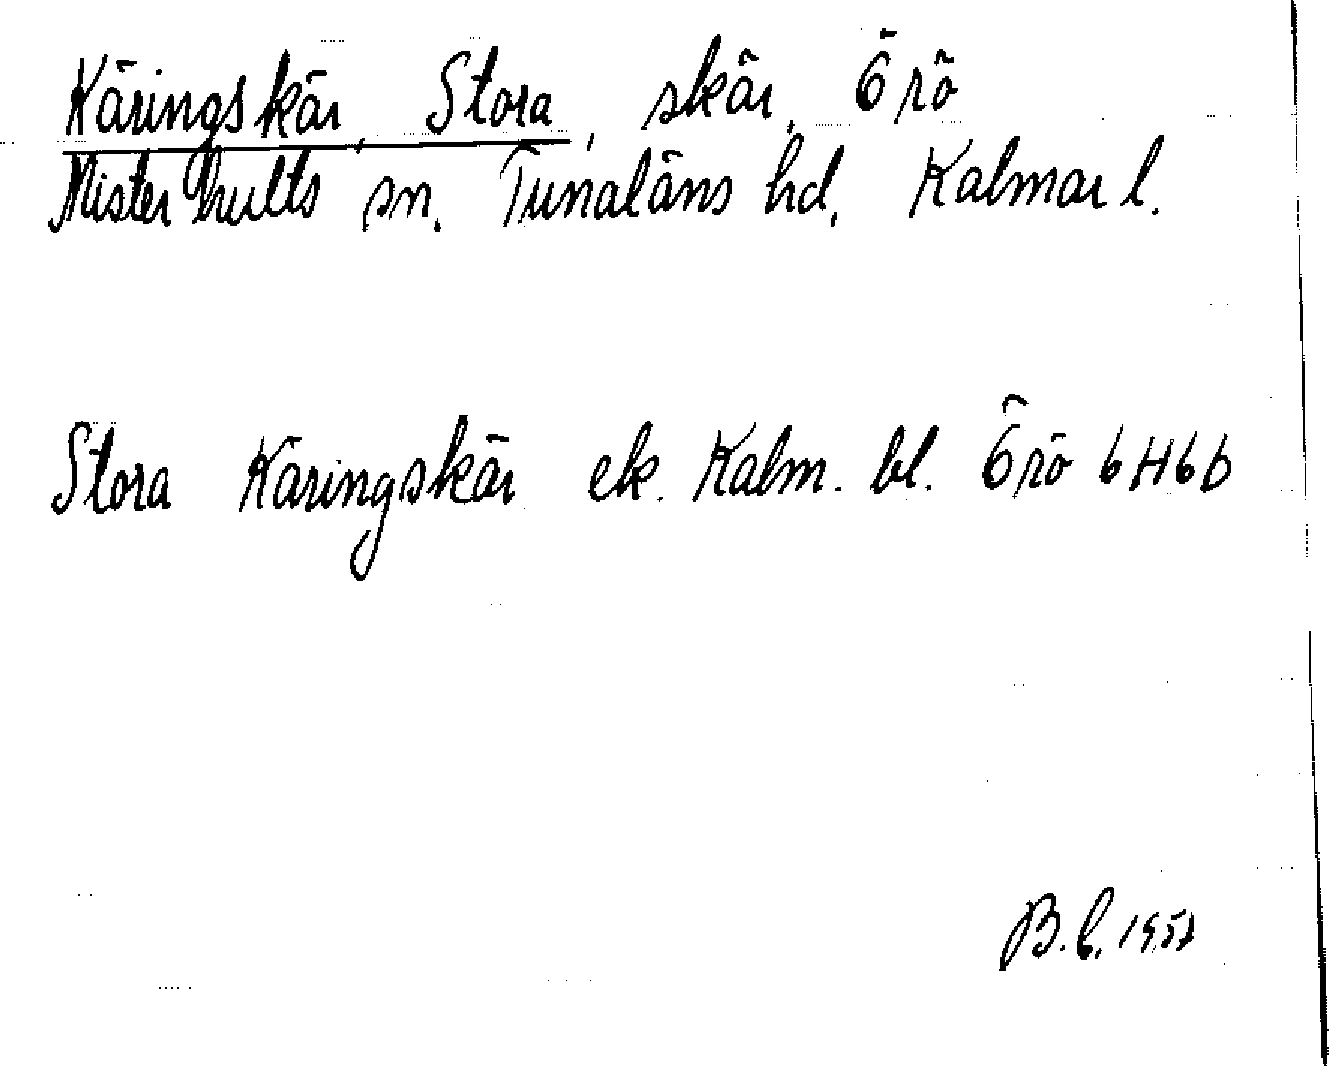 Käringskär, Stora, skär, Örö
Misterhults sn. Tunaläns hd, Kalmar l.
Stora Käringskär ek. Kalm. bl. Örö 6H6b
B.C. 1957